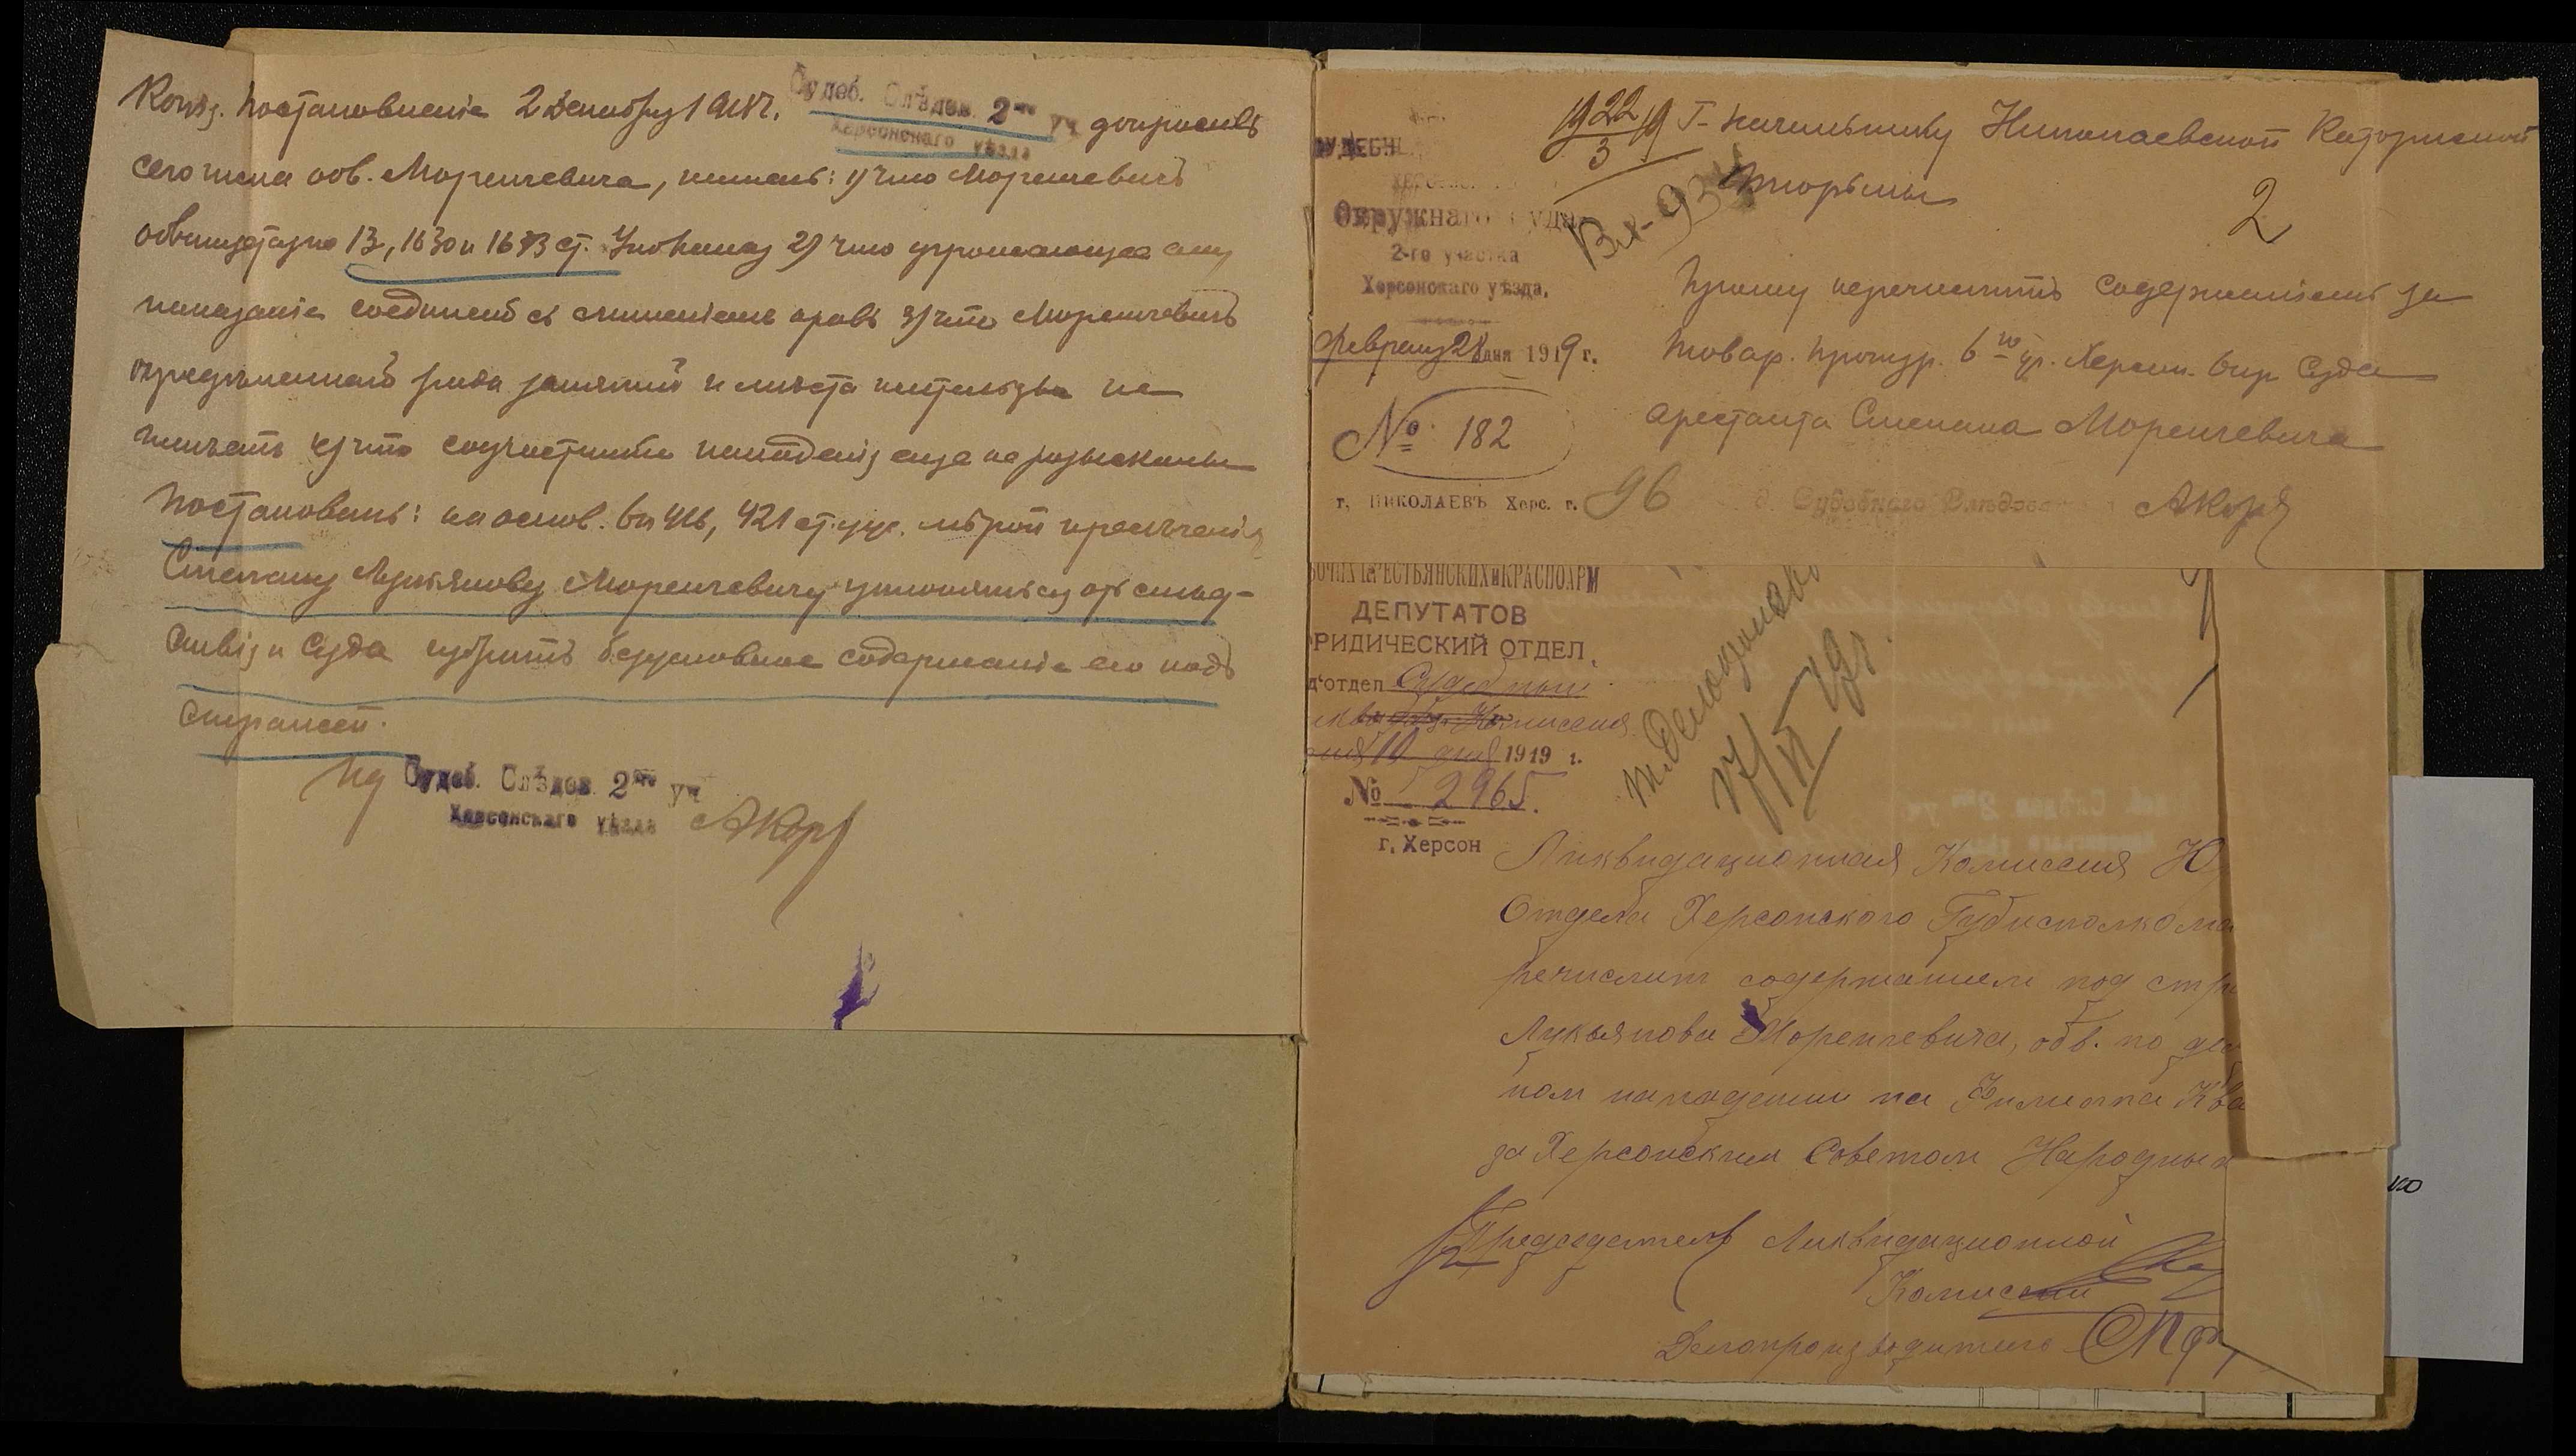 Копія. Постановленіе 2 декабря 1918 г. Судеб. Слѣдов. 2го уч. Херсонскаго уѣзда допросивъ
сего числа обв. Моренчевича, нашелъ: 1) что Моренчевичъ
обвиняется по 13, 1630 и 1633 ст. Улож о наказ 2) что угрожающее ему
наказаніе соединено съ лишеніемъ правъ 3) что Моренчевичъ
опредѣленнаго рода занятій и мѣста жительства не
имѣетъ 4) что соучастники нападенія еще не розысканы
постановилъ: на основ. 416, 421 ст. у.у.с. мѣрой пресѣченія
Степану Лукьянову Моренчевичу уклоняться отъ слѣд-
ствія и Суда избрать безусловное содержаніе его подъ
стражей.
Судеб. Слѣдов. 2го уч
Херсонскаго уѣзда АКорф
СУДЕБН
Окружнаго Суда
2-го участка
Херсонскаго уѣзда,
февраля 28 дня 1919 г.
№ 182
г. НИКОЛАЕВЪ Херс. г.
96
19 22/3 19
Вх-93
Г-Начальнику Николаевской Каторжной
тюрьмы
2
Прошу перечислить содержаніемъ за
Товар. прокур. 6го уч. Херсон. Окр Суда
арестанта Степана Моренчевича
Судебнаго Слѣдов АКорф
БОЧИХ КРЕСТЬЯНСКИХ И КРАСНОАРМ
ДЕПУТАТОВ
РИДИЧЕСКИЙ ОТДЕЛ,
д'отдел Судебный
Комиссия
10 дня 1919 г.
№ 2965.
г. Херсон
17/VI 19 г.
Ликвидационная Комиссия Ю
Отдела Херсонского Губисполкома
речислит содержанием под стр
Лукьянова Моренчевича, обв. по де
ном нападении на Филиппа Ква
за Херсонским Советом Народных
Председатель Ликвидационной
Комиссии
Делопроизводитель